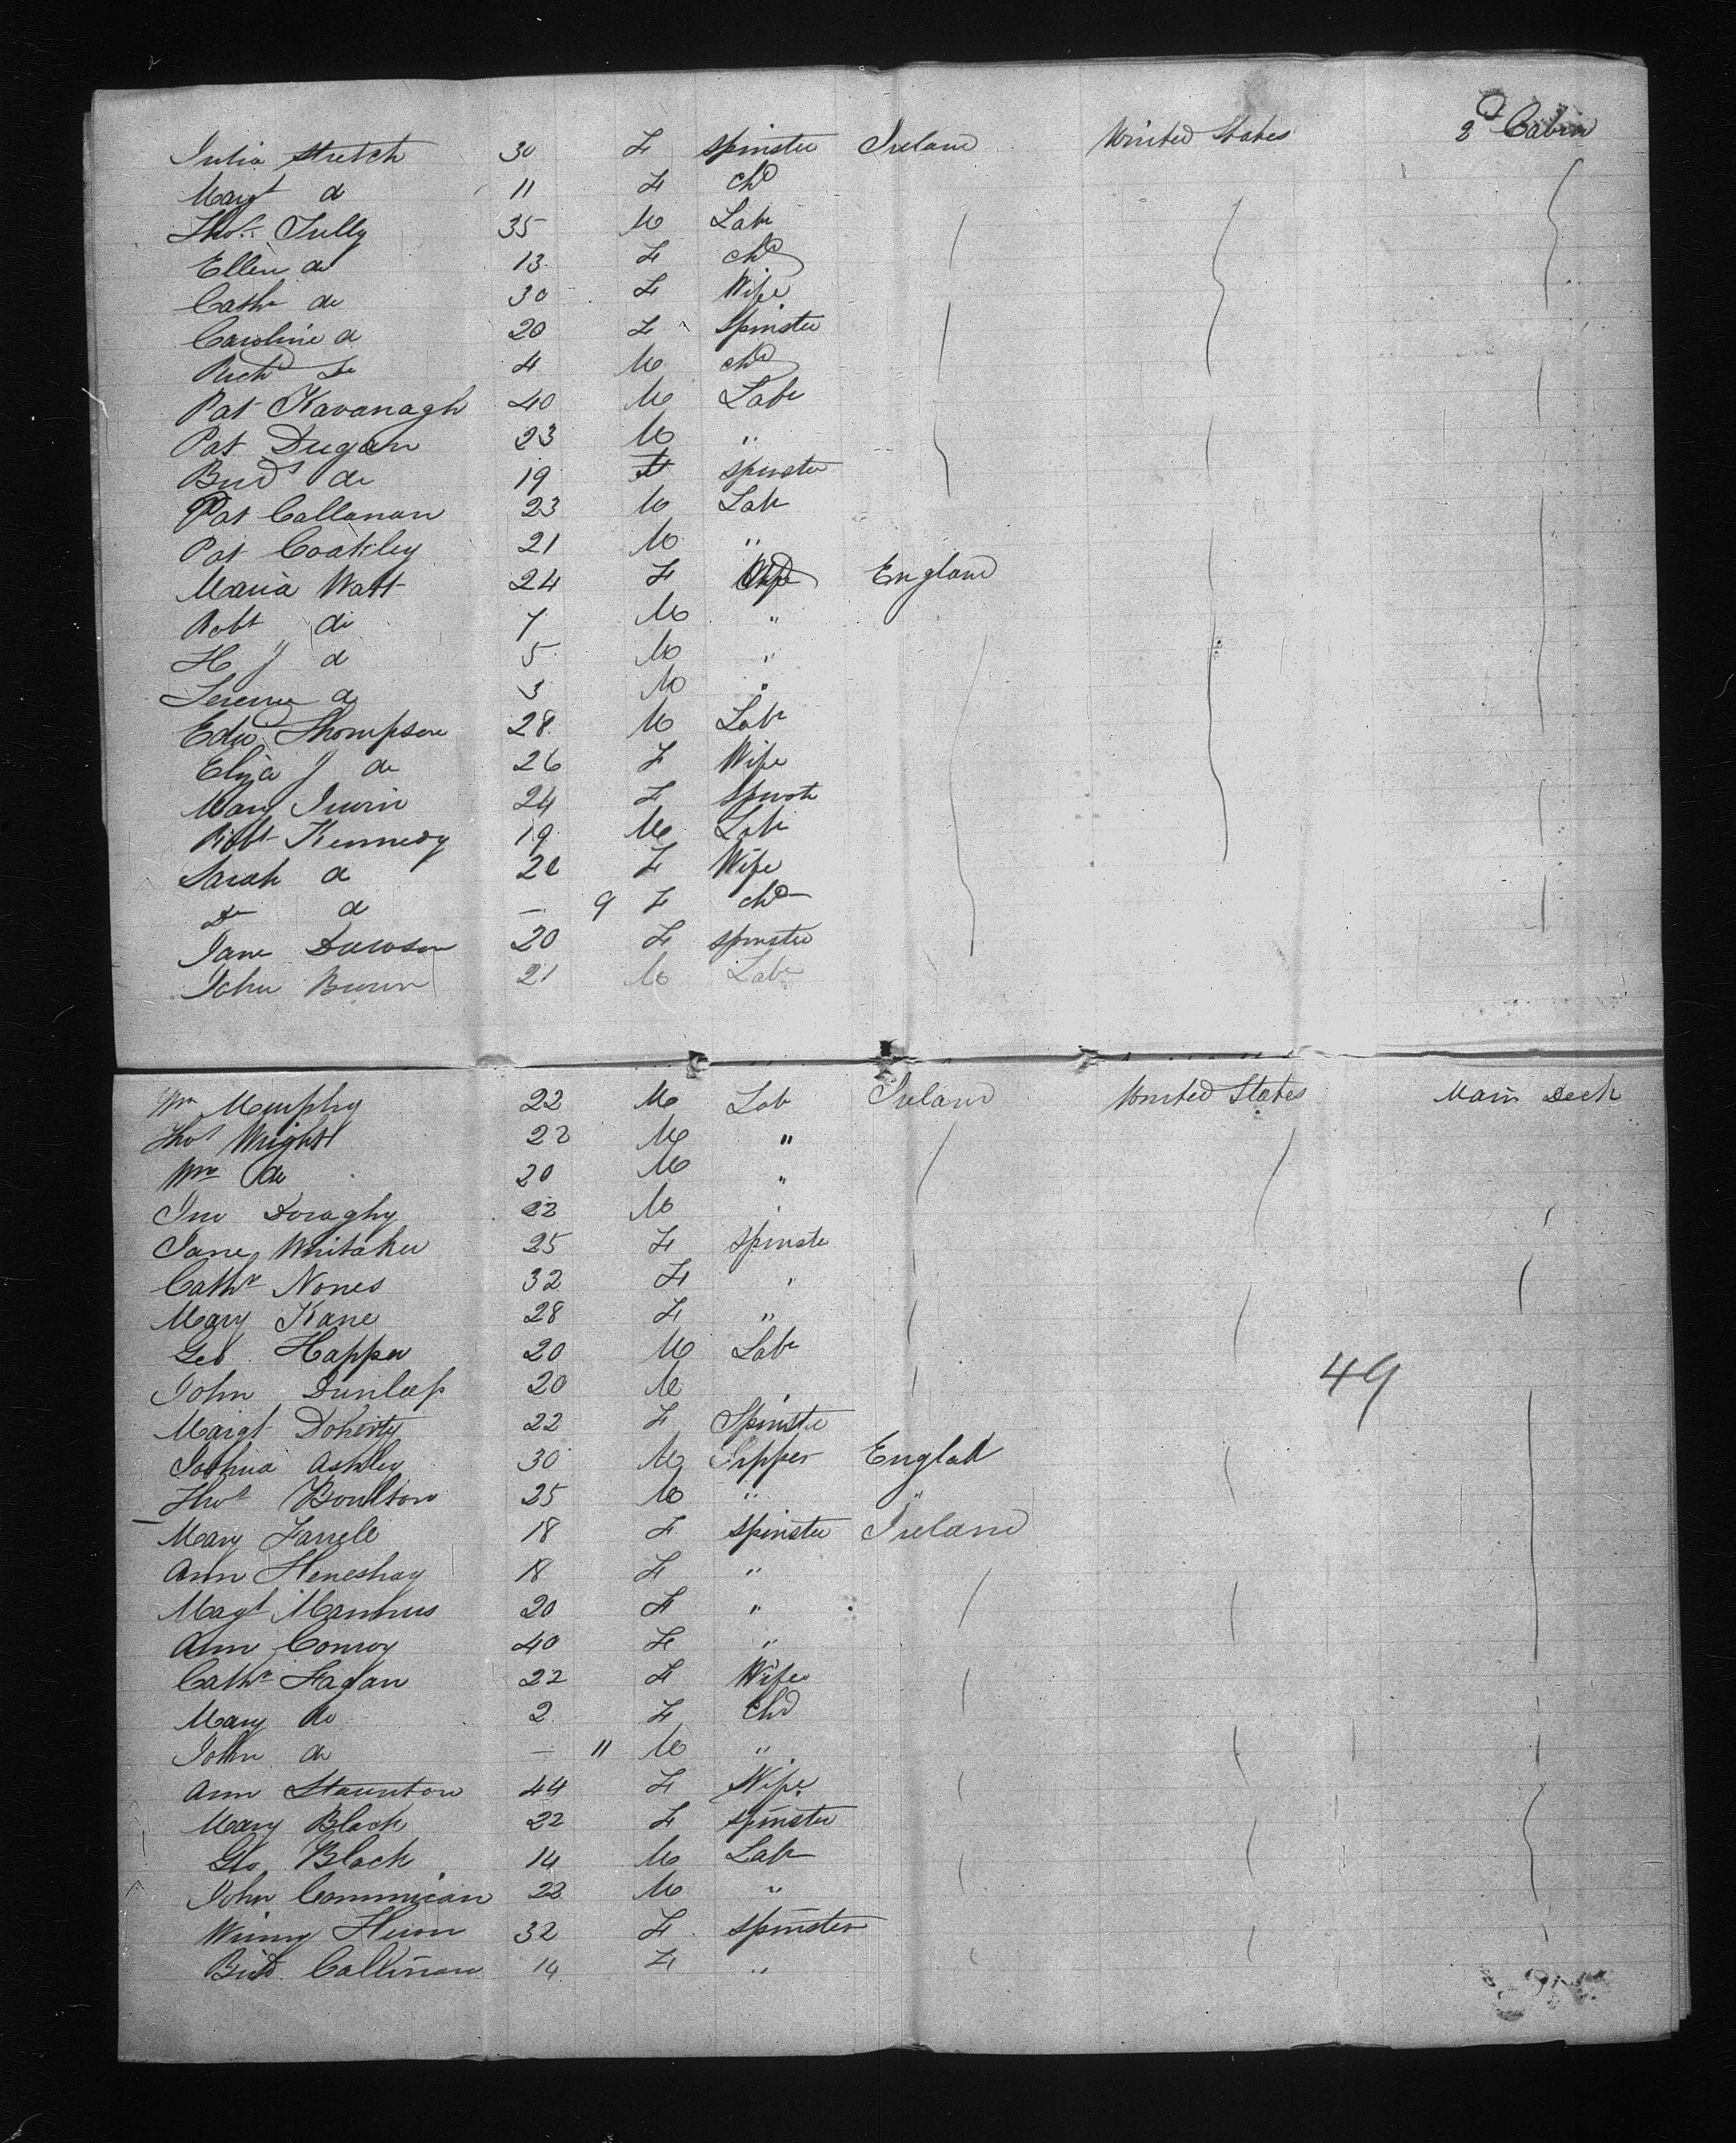 Julia Stretch 30 F Spinster Ireland United States 2d Cabin
Margt do 11 F Chd
Thos Tully 35 M Labr
Ellen do 13 F Chd
Cathe do 30 F Wife
Caroline do 20 F Spinster
Richd Do 4 M Chd
Pat Kavanagh 40 M Labr
Pat Dugan 23 M "
Bridt do 19 F Spinster
Pat Callanan 23 M Labr
Pat Coakley 21 M "
Maria Watt 24 F England
Robt do 7 M "
H J do 5 M "
do 3 M "
Edwd Thompson 28 M Labr
Eliza J do 26 F Wife
Mary Irwin 24 F Spinst
Robt Kennedy 19 M Labr
Sarah do 20 F Wife
Do do — 9 F Chd
Jane Dawson 20 F Spinster
John 21 M Labr
Wm Murphy 22 M Labr Ireland United States Main Deck
Thos Wright 22 M "
Wm do 20 M "
Jno Doraghy 22 M "
Jane Whitaker 25 F Spinste
Cathe Nones 32 F "
Mary Kane 28 F "
Geo Happer 20 M Labr
John Dunlap 20 M 49
Margt Doherty 22 F Spinster
Joshua Ashley 30 M England
Thos Boulton 25 M " "
Mary Farrell 18 F Spinster Ireland
Ann Heneshay 18 F "
Magt Mannus 20 F "
Ann Conroy 40 F "
Cathe Fagan 22 F Wife
Mary do 2 F Chd
John do — 11 M "
Ann Staunton 44 F Wife
Mary Black 22 F Spinster
Geo Black 14 M Labr
John 22 M "
Winny Heron 32 F Spinster
Brid Callinan 14 F "